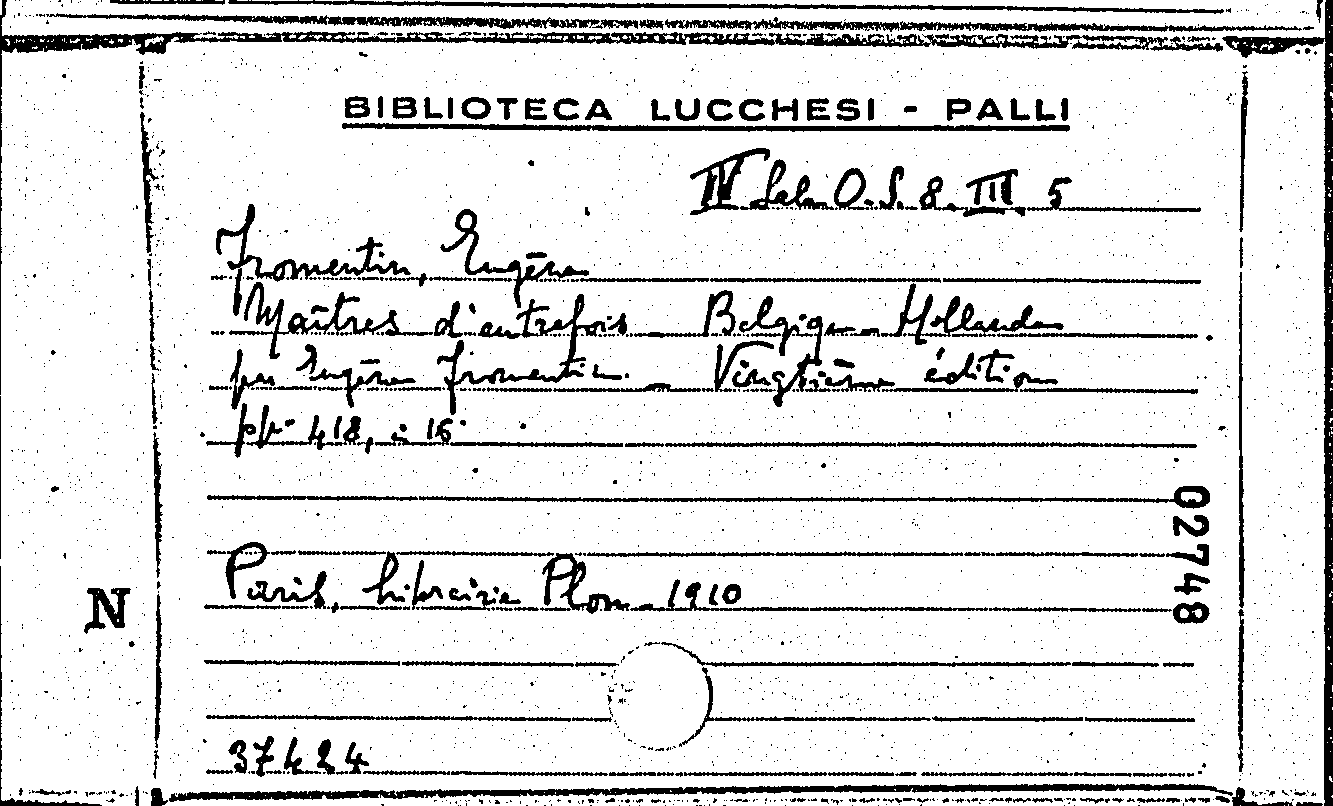 BIBLIOTECA LUCCHESI - PALLI
IV Sala O. S. 8. III. 5
Fromentin, Eugène
Maîtres d'autrefois - Belgique - Hollande
par Eugène Fromentin. - Vingtième édition
pp. 418, in 16°
02748
N
Paris, Librairie Plon - 1910
37424